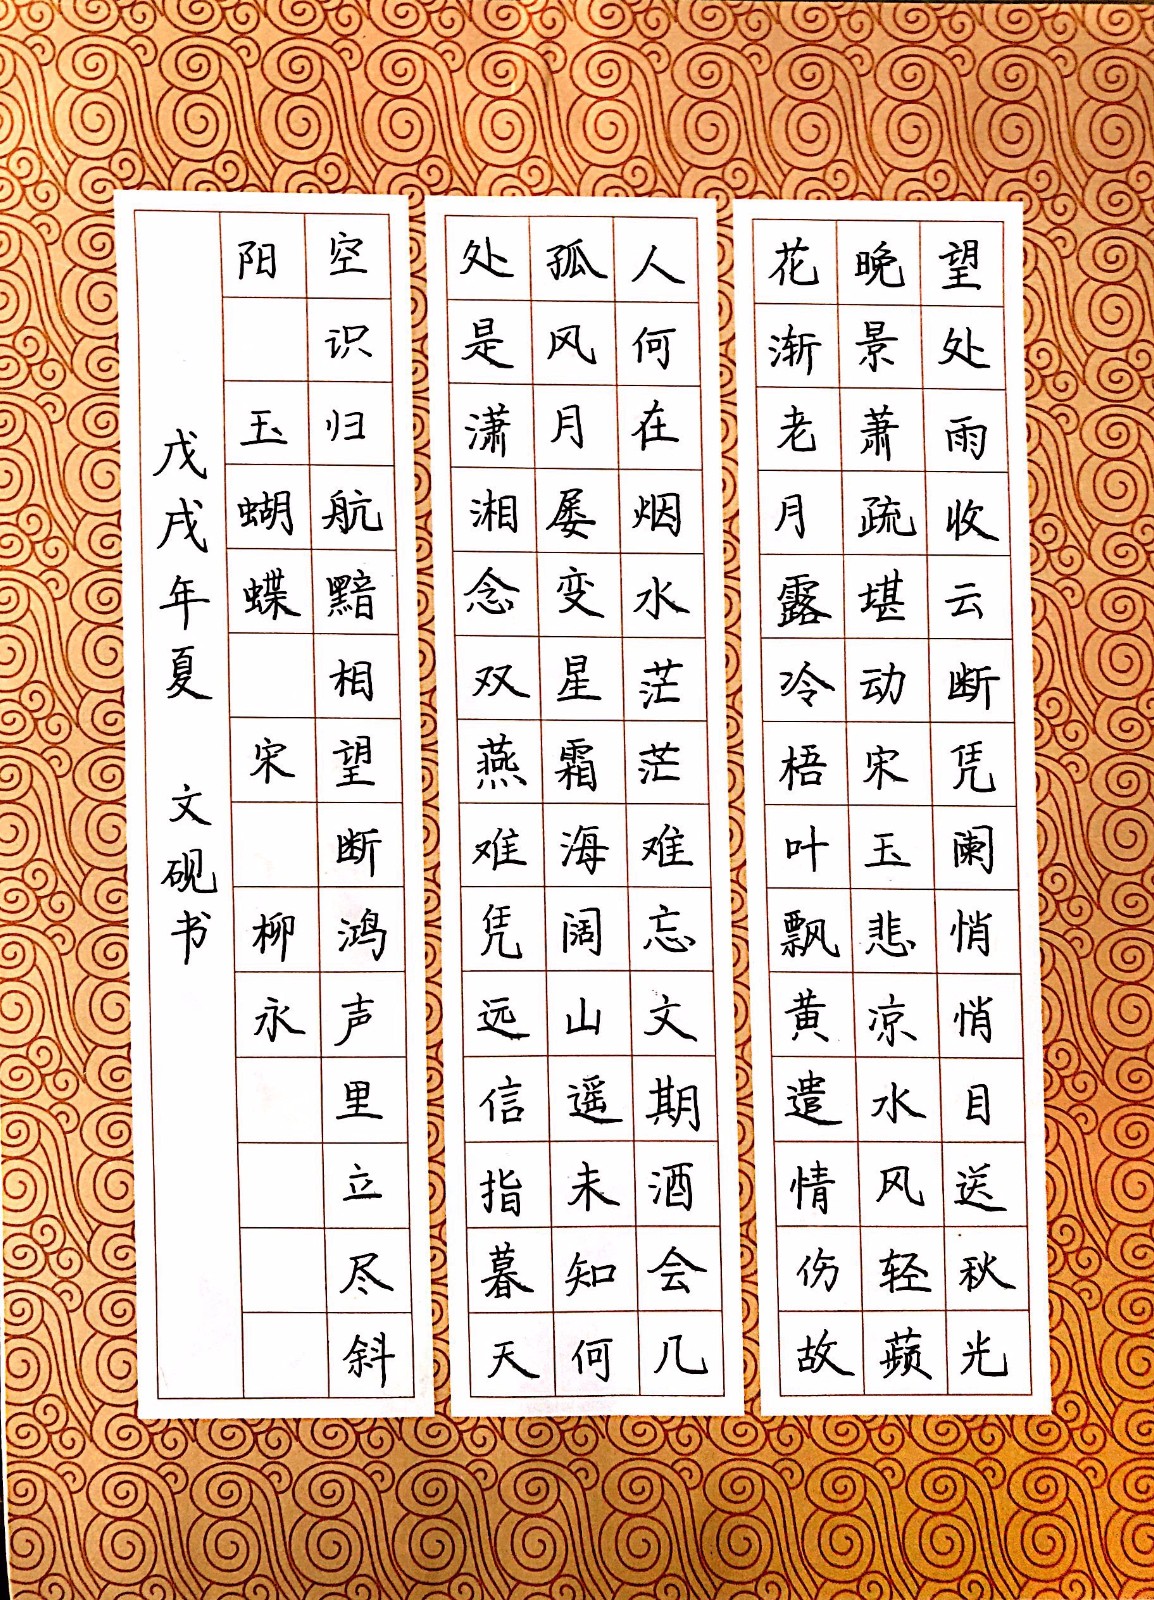 望处雨收云断凭阑悄悄目送秋光
晚景萧疏堪动宋玉悲凉水风轻蘋
花渐老月露冷梧叶飘黄遣情伤故
人何在烟水茫茫难忘文期酒会几
孤风月屡变星霜海阔山遥未知何
处是潇湘念双燕难凭远信指暮天
空识归航黯相望断鸿声里立尽斜
阳 玉蝴蝶 宋 柳永
戊戌年夏 文砚书